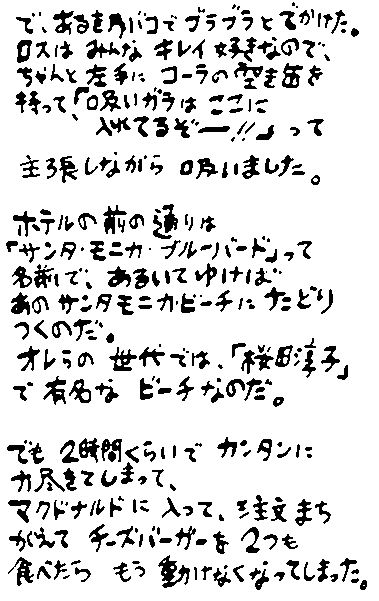 で、あるきタバコでブラブラとでかけた。
ロスはみんなキレイ好きなので、
ちゃんと左手にコーラの空き缶を
持って、「吸いガラはここに
入れてるぞー!!」って
主張しながら吸いました。
ホテルの前の通りは
「サンタ・モニカ・ブルーバード」って
名前で、あるいてゆけば
あのサンタモニカ・ビーチにたどり
つくのだ。
オレらの世代では、「桜田淳子」
で有名なビーチなのだ。
でも2時間くらいでカンタンに
力尽きてしまって、
マクドナルドに入って、注文まち
がえてチーズバーガーを2つも
食べたらもう動けなくなってしまった。